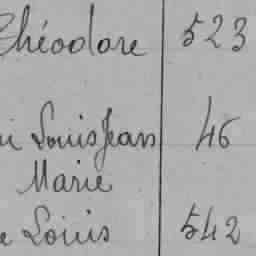 Théodore 523
Louis Jean 46
Marie
Louis 542